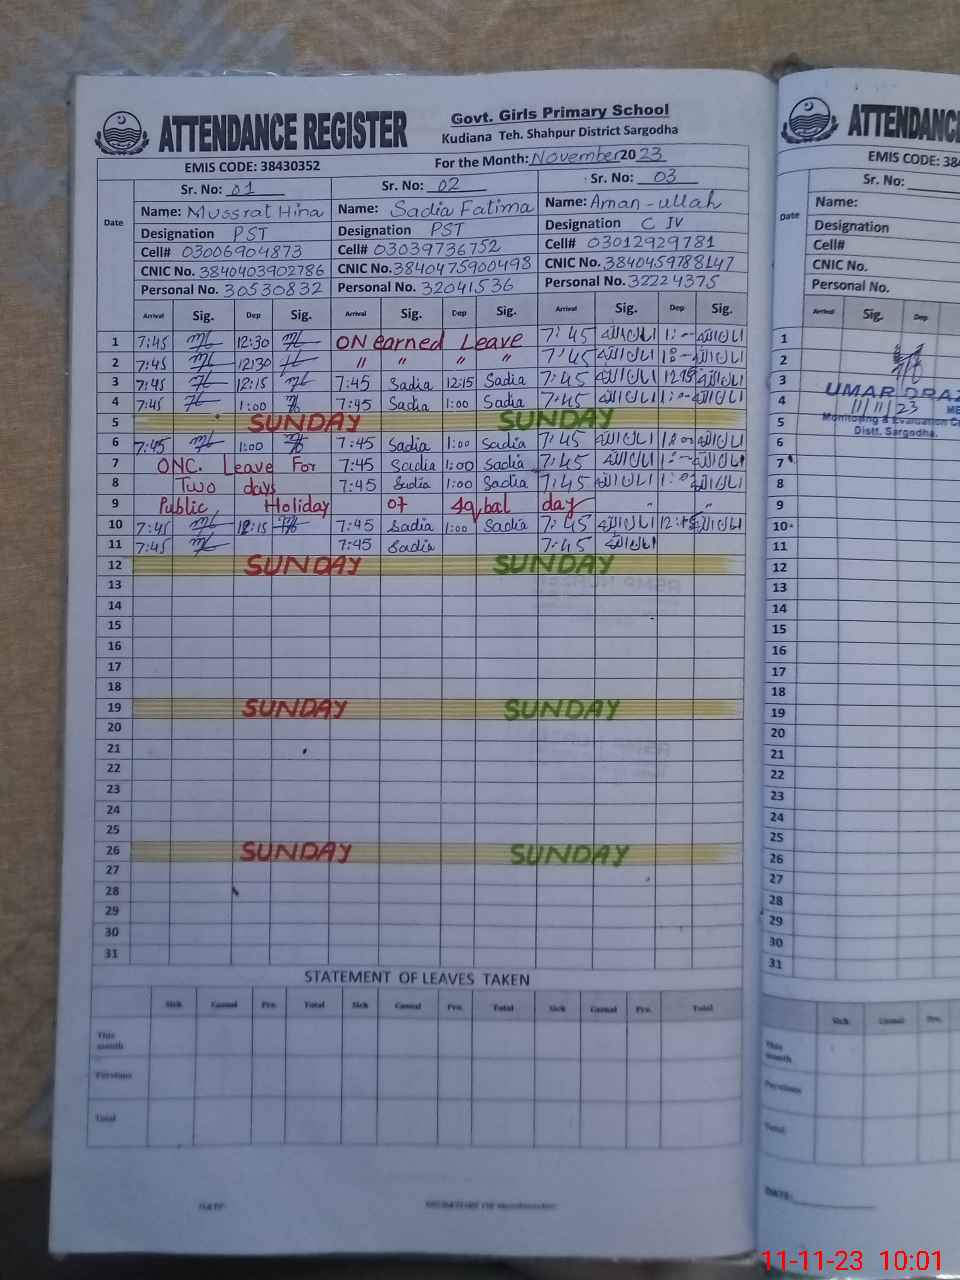 ATTENDANCE REGISTER
Govt. Girls Primary School
Kudiana Teh. Shahpur District Sargodha
EMIS CODE: 38430352
For the Month: November 2023
Sr. No: 01 Sr. No: 02 Sr. No: 03
Date
Name: Mussrat Hina Name: Sadia Fatima Name: Aman-ullah
Designation PST Designation PST Designation C IV
Cell# 03006904873 Cell# 03039736752 Cell# 03012929781
CNIC No. 3840403902786 CNIC No. 3840475900498 CNIC No. 3840459788147
Personal No. 30530832 Personal No. 32041536 Personal No. 32224375
Arrival Sig. Dep Sig. Arrival Sig. Dep Sig. Arrival Sig. Dep Sig.
1 7:45 12:30 ON earned Leave 7:45 امان اللہ 1:-- امان اللہ
2 7:45 12:30 〃 〃 〃 〃 7:45 امان اللہ امان اللہ
3 7:45 12:15 7:45 Sadia 12:15 Sadia 7:45 امان اللہ 12:15 امان اللہ
4 7:45 1:00 7:45 Sadia 1:00 Sadia 7:45 امان اللہ 1:-- امان اللہ
5 SUNDAY SUNDAY
6 7:45 1:00 7:45 Sadia 1:00 Sadia 7:45 امان اللہ امان اللہ
7 ONC. Leave For 7:45 Sadia 1:00 Sadia 7:45 امان اللہ 1:-- امان اللہ
8 Two days 7:45 Sadia 1:00 Sadia 7:45 امان اللہ امان اللہ
9 Public Holiday of Iqbal day
10 7:45 12:15 7:45 Sadia 1:00 Sadia 7:45 امان اللہ 12:15 امان اللہ
11 7:45 7:45 Sadia 7:45 امان اللہ
12 SUNDAY SUNDAY
13
14
15
16
17
18
19 SUNDAY SUNDAY
20
21
22
23
24
25
26 SUNDAY SUNDAY
27
28
29
30
31
STATEMENT OF LEAVES TAKEN
Sick Casual Prv. Total Sick Casual Prv. Total Sick Casual Prv. Total
This month
Previous
Total
DATE
ATTENDANCE
EMIS CODE: 384
Sr. No:
Date
Name:
Designation
Cell#
CNIC No.
Personal No.
Arrival Sig. Dep
1
2
3
UMAR DRAZ
4
11/11/23
ME
5
Monitoring & Evaluation
Distt. Sargodha.
6
7
8
9
10
11
12
13
14
15
16
17
18
19
20
21
22
23
24
25
26
27
28
29
30
31
Sick Casual Prv.
This month
Previous
Total
DATE:
11-11-23 10:01